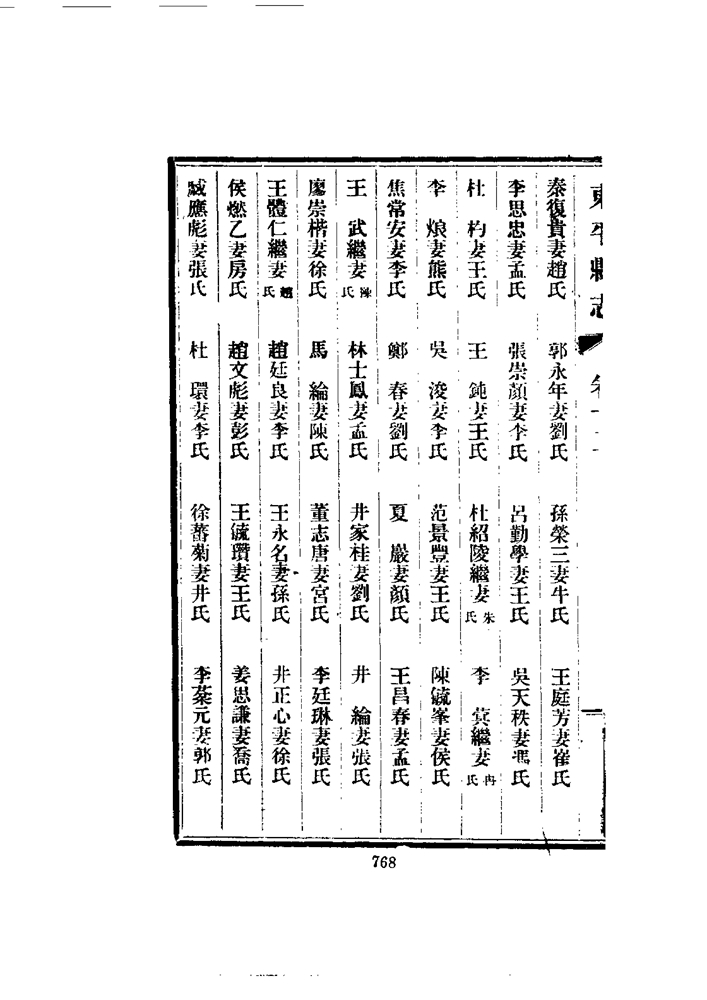 東平縣志 卷十
秦復貴妻趙氏 郭永年妻劉氏 孫榮三妻牛氏 王庭芳妻崔氏
李思忠妻孟氏 張崇顏妻李氏 呂勤學妻王氏 吳天秩妻馮氏
杜 杓妻王氏 王 鈍妻王氏 杜紹陵繼妻朱氏 李 蓂繼妻冉氏
李 烺妻熊氏 吳 浚妻李氏 范景豐妻王氏 陳毓峯妻侯氏
焦常安妻李氏 鄭 春妻劉氏 夏 嚴妻顏氏 王昌春妻孟氏
王 武繼妻 氏 林士鳳妻孟氏 井家桂妻劉氏 井 綸妻張氏
廖崇楷妻徐氏 馬 綸妻陳氏 董志唐妻宮氏 李廷琳妻張氏
王體仁繼妻趙氏 趙廷良妻李氏 王永名妻孫氏 井正心妻徐氏
侯燃乙妻房氏 趙文彪妻彭氏 王毓瓚妻王氏 姜思謙妻喬氏
臧應彪妻張氏 杜 環妻李氏 徐蕃菊妻井氏 李棻元妻郭氏
768